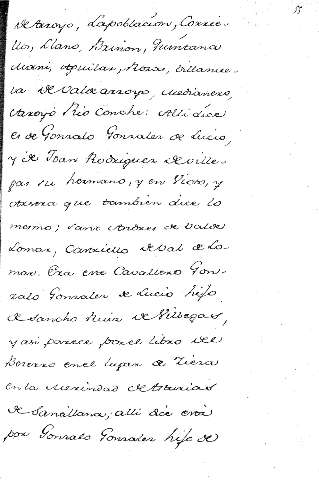 de Arroyo, Lapoblacion, Corrie-
llos, Llano, Briñon, Quintana
Mani, Aguilar, Rosas, Villanue-
ba de Valdearroyo, Medianero,
Arroyo Rio Conche: Alli dice
es de Gonzalo Gonzalez de Lucio,
y de Joan Rodriguez de Ville-
gas su hermano, y en Viom, y
que tambien dice lo
mismo; Sant Andres de Valde
Lomar, Castriello de Val de Lo-
mar. Era este Cavallero Gon-
zalo Gonzalez de Lucio hijo
de Sancho Ruiz de Villegas,
y asi parece por el libro del
Becerro en el lugar de Tiera
en la Merindad de Asturias
de Santillana; alli dice era
por Gonzalo Gonzalez hijo de